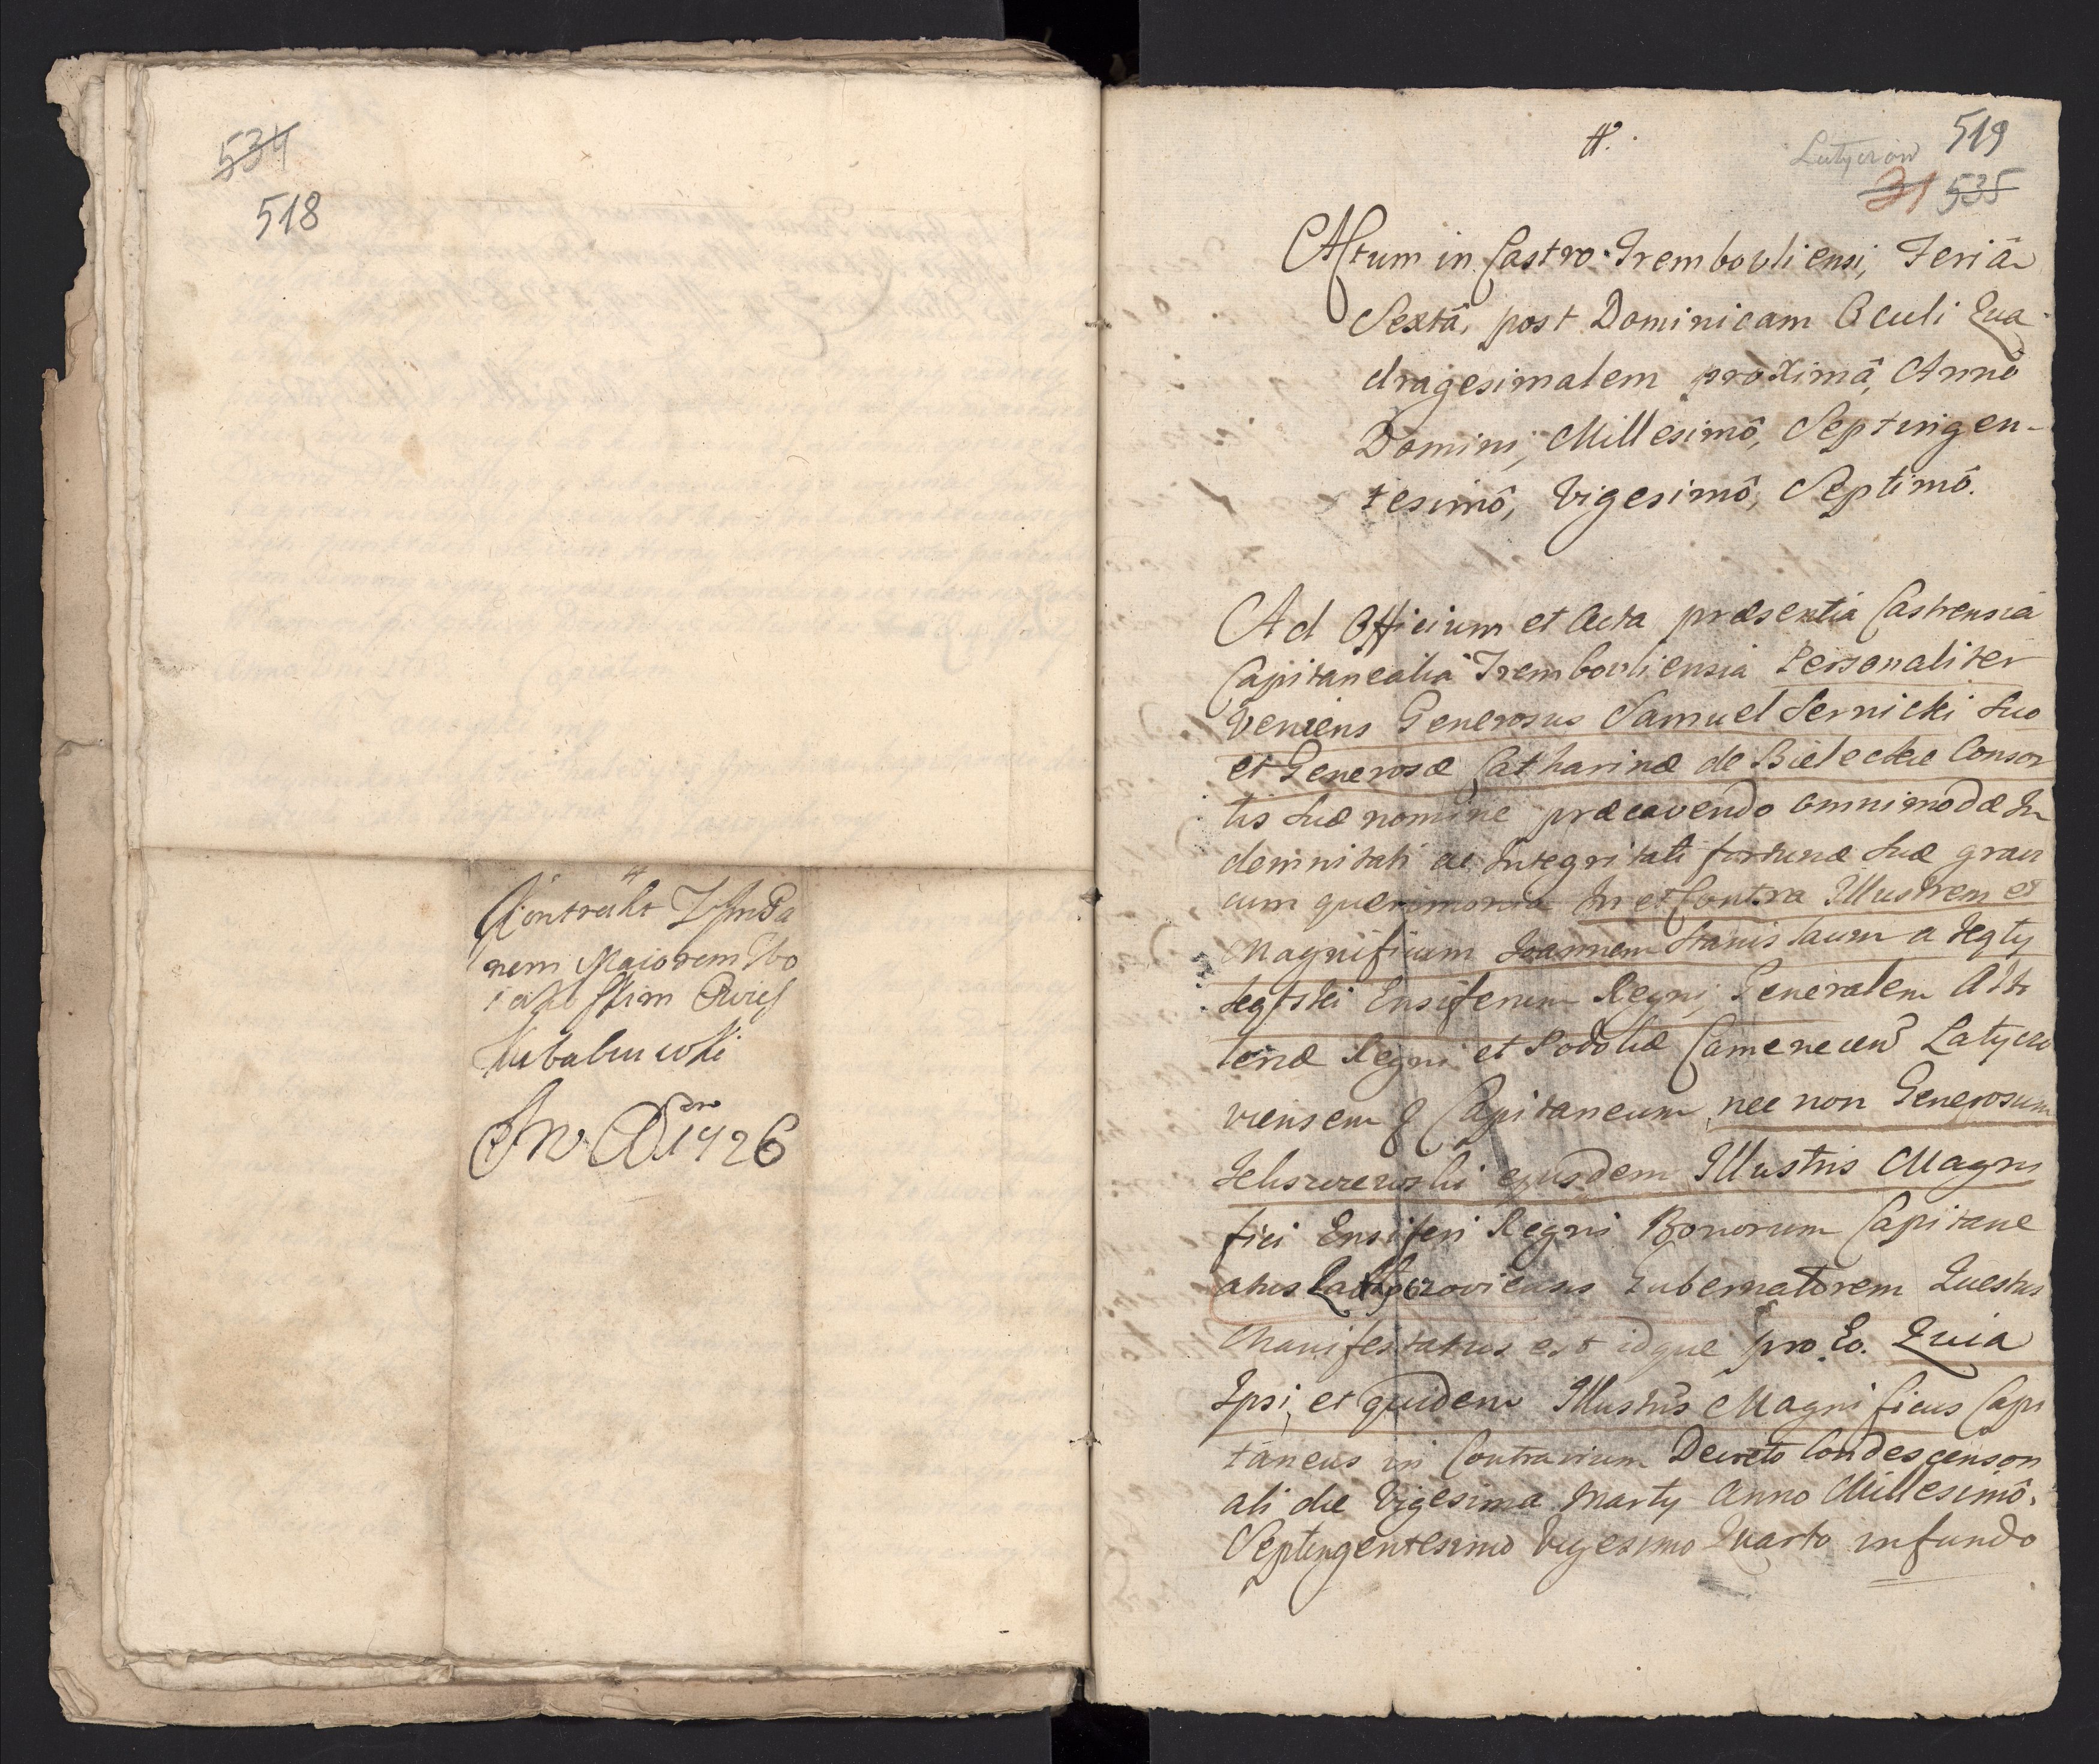 534
518
Kontrakt
nem Maiorem
Anno D 1726
#.
Latyczow 519
31 535
Actum in Castro Trembovliensi, Feriâ
Sextâ, post Dominicam Oculi Qua
dragesimalem proximâ, Annô
Domini, Millesimô, Septingen-
tesimô, Vigesimô, Septimô.
Ad Officium et Acta præsentia Castrensia
Capitanealia Trembovliensia Personaliter
Veniens Generosus Samuel Sernicki Suo
et Generosæ Catharinæ de Bieleckie Consor
tis Suæ nomine præcavendo omnimodæ In
demnitati ac Integritati fortunæ Suæ gravi
cum querimonia In et Contra Illustrem et
Magnificum Joannem Stanislaum a
Ensiferum Regni, Generalem
Regni et Podoliæ Latyczo
viensem q Capitaneum nec non Generosum
ejusdem Illustris Magni
fici Ensiferi Regni Bonorum Capitane
atus Latyczoviensis Gubernatorem Questus
Manifestatus est idque pro Eo. Quia
Ipsi, et quidem Illustris Magnificus Capi
taneus in Contrarium Decreto Condescension
ali die Vigesima Marty Anno Millesimô.
Septingentesimo Vigesimo Quarto in fundo